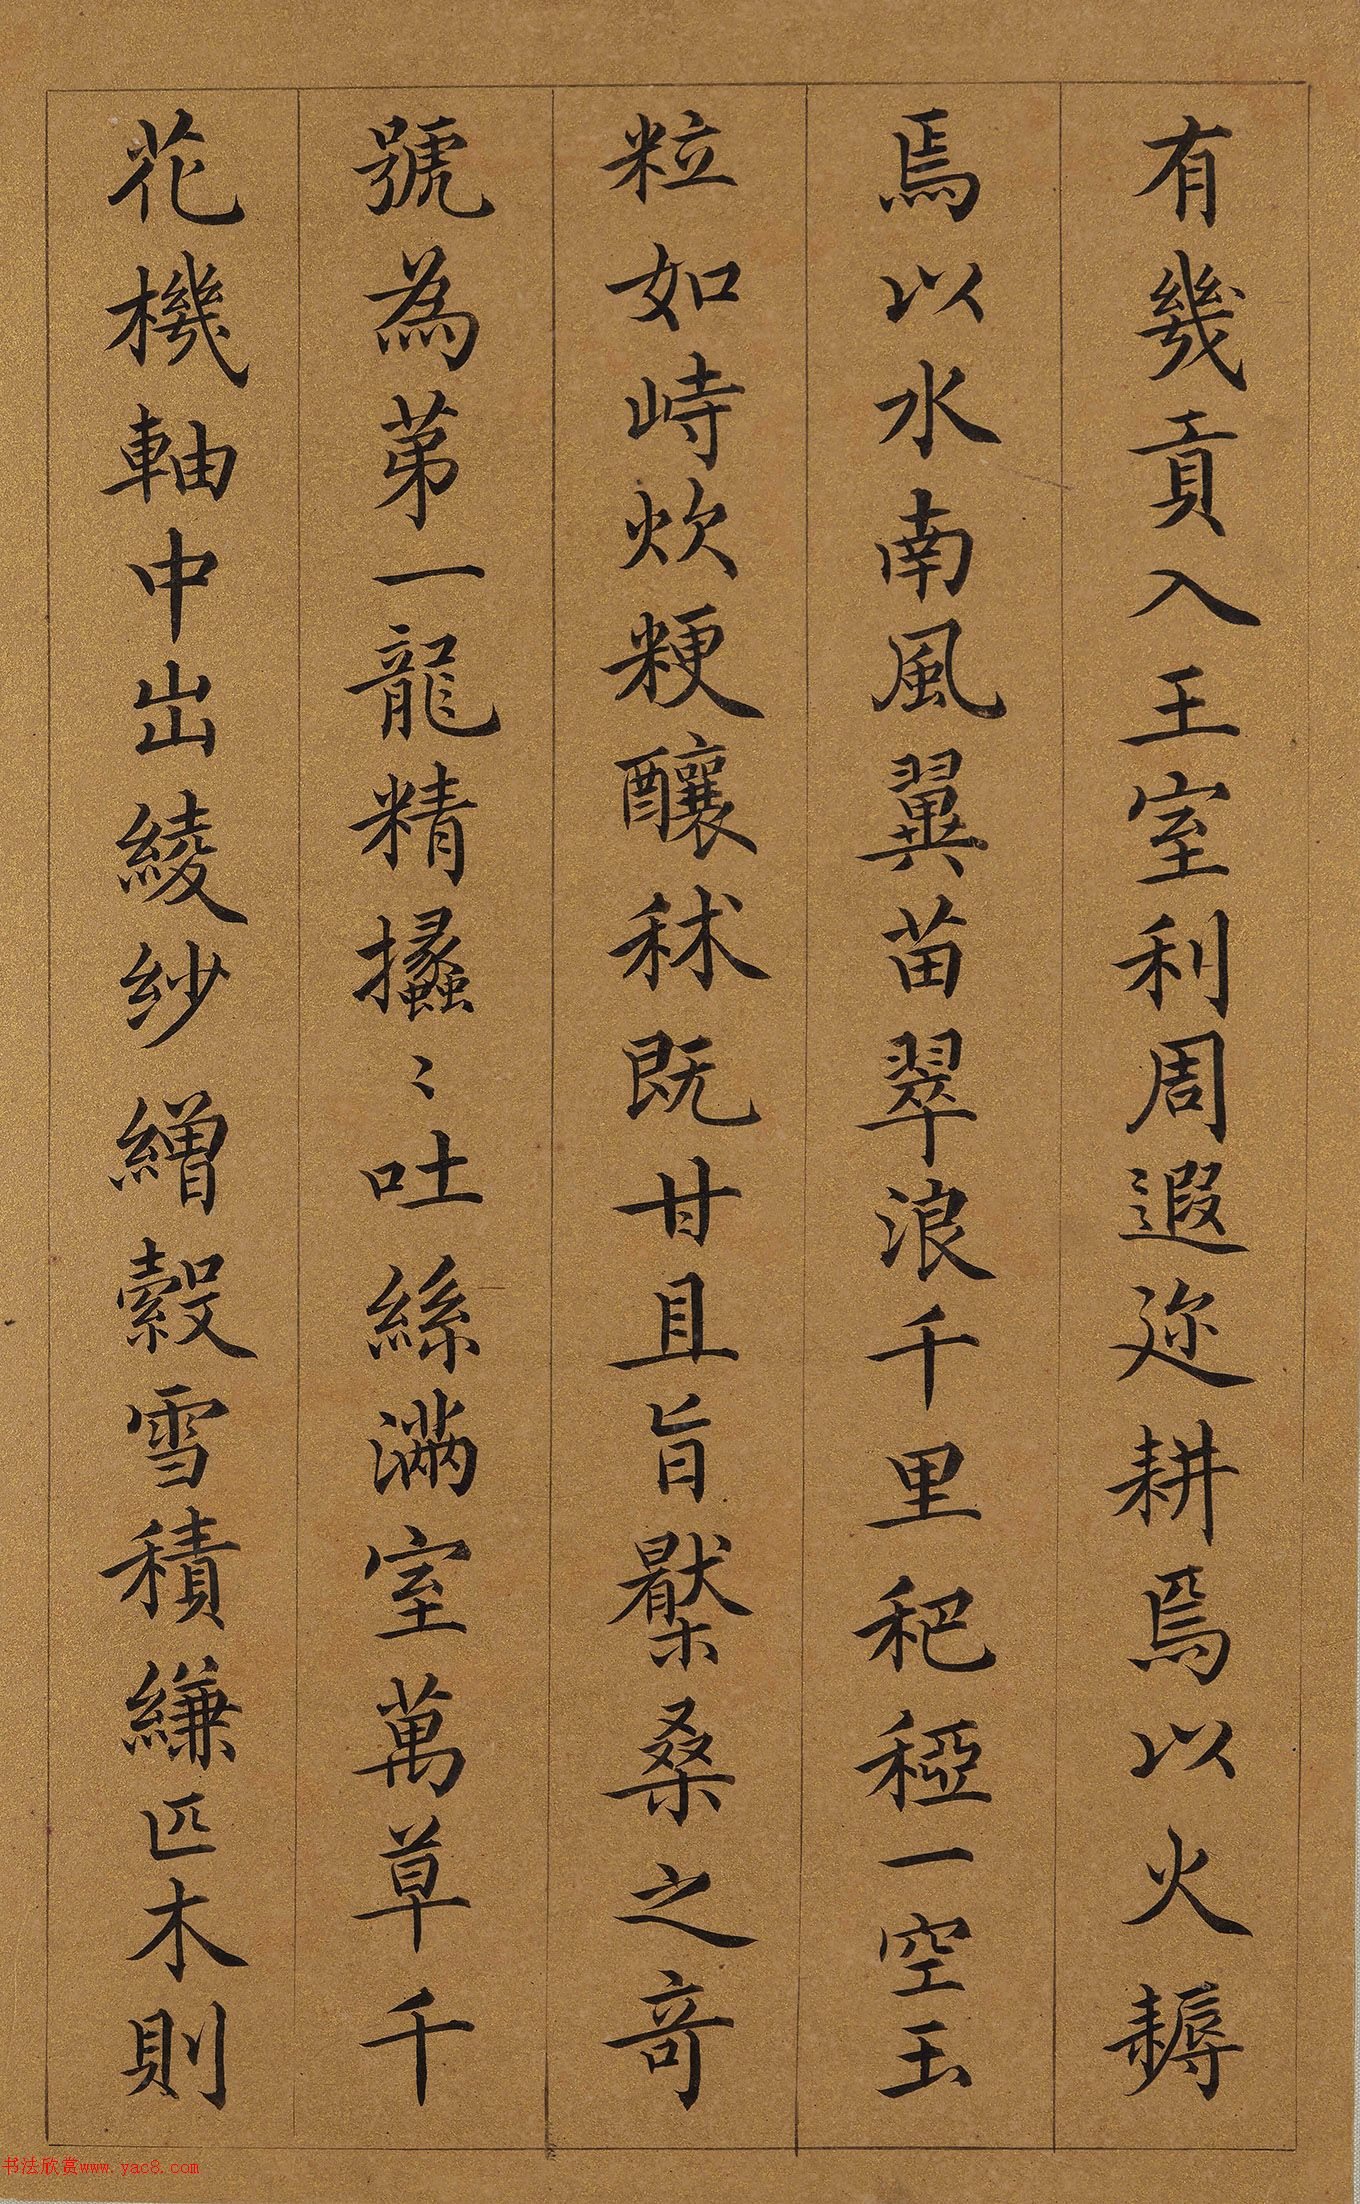 有幾貢入王室利周遐迩耕焉以火耨
焉以水南風翼苗翠浪千里秬稏一空玉
粒如峙炊粳釀秫既甘且旨檿桑之竒
號為苐一龍精㩡〻吐絲滿室萬草千
花機軸中出綾紗繒縠雪積縑匹木則
书法欣赏www.yac8.com